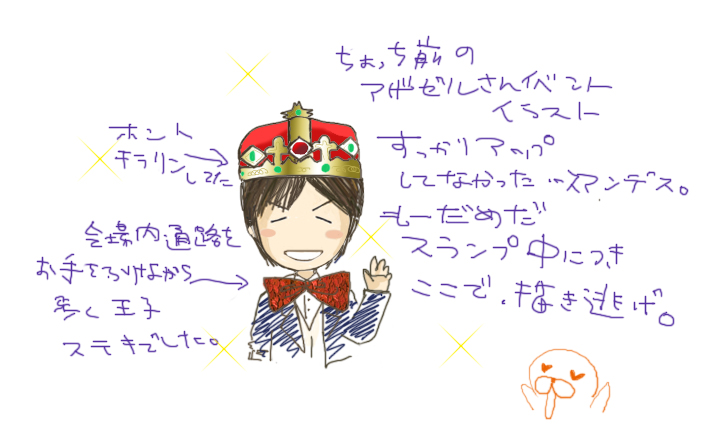 ちょっち前の
アザゼルさんイベント
イラスト
すっかりアップ
してなかった…スマンデス。
もーだめだ
スランプ中につき
ここで、描き逃げ。
ホント
キラリンしてた
会場内通路を
お手をふりながら
歩く王子
ステキでした。